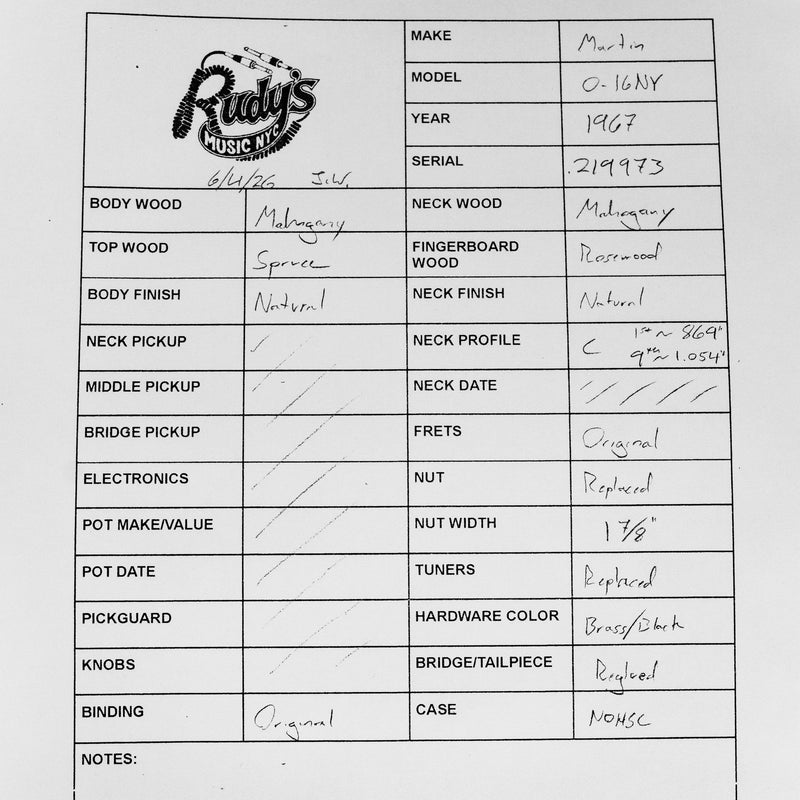 Rudy's
MUSIC NYC
6/4/26 J.W.
MAKE Martin
MODEL 0-16NY
YEAR 1967
SERIAL 219973
BODY WOOD Mahogany NECK WOOD Mahogany
TOP WOOD Spruce FINGERBOARD WOOD Rosewood
BODY FINISH Natural NECK FINISH Natural
NECK PICKUP NECK PROFILE C 1st ~ .869"
9th ~ 1.054"
MIDDLE PICKUP NECK DATE
BRIDGE PICKUP FRETS Original
ELECTRONICS NUT Replaced
POT MAKE/VALUE NUT WIDTH 1 7/8"
POT DATE TUNERS Replaced
PICKGUARD HARDWARE COLOR Brass/Black
KNOBS BRIDGE/TAILPIECE Reglued
BINDING Original CASE NOHSC
NOTES: